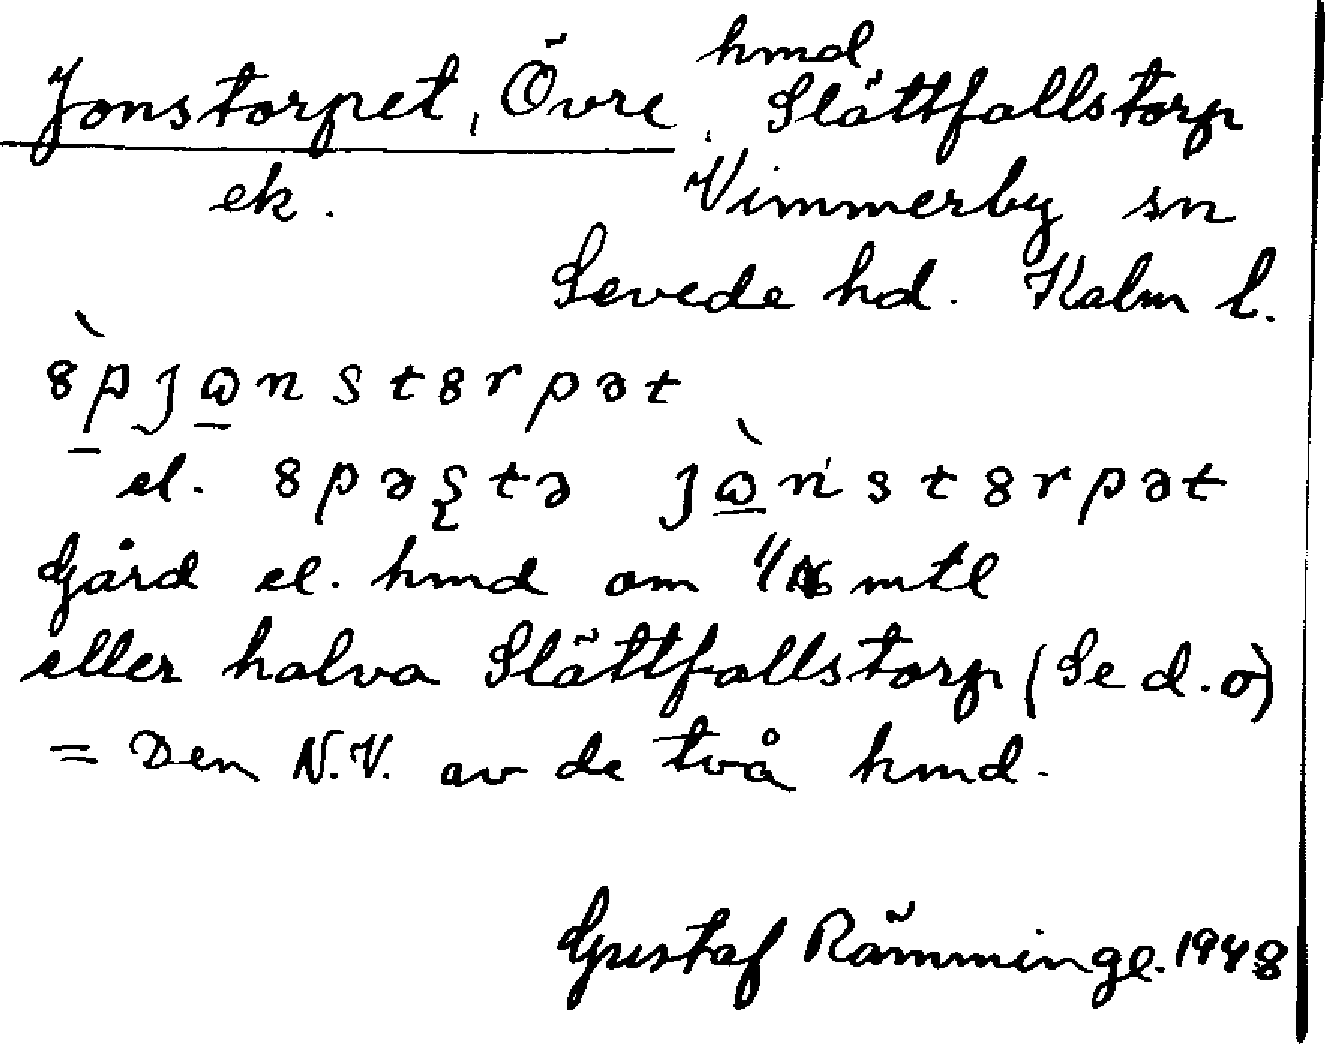 hmd
Jonstorpet, Övre, Slättfallstorp
ek. Vimmerby sn
Sevede hd. Kalm l.
el.
Gård el. hmd om mtl
eller halva Slättfallstorp (Se d.o)
= Den N.V. av de två hmd.
Gustaf Rämminge. 1948